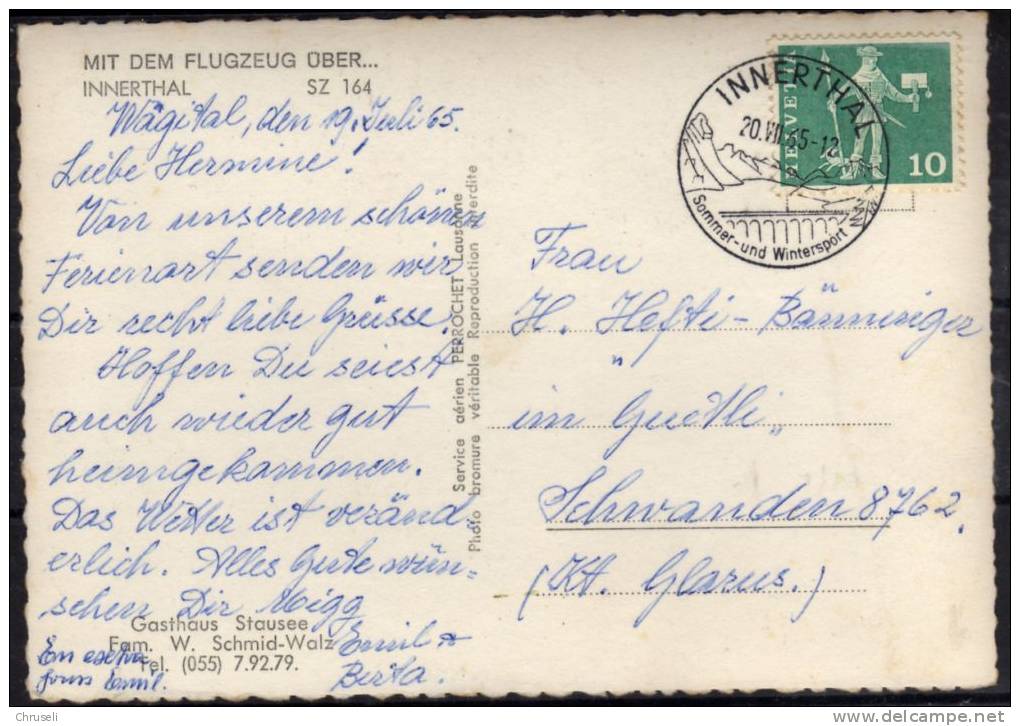 MIT DEM FLUGZEUG ÜBER...
INNERTHAL SZ 164
Wägital, den 19. Juli 65.
Liebe Hermine!
Von unserem schönen
Ferienort senden wir
Dir recht liebe Grüsse.
Hoffen Du seiest
auch wieder gut
heimgekommen.
Das Wetter ist veränd
erlich. Alles Gute wün=
schen Dir Migg
Emil &
Berta.
Gasthaus Stausee
Fam. W. Schmid-Walz
Tel. (055) 7.92.79.
Emil.
Service aérien PERROCHET Lausanne
Photo bromure véritable Reproduction interdite
INNERTHAL
20.VII.65-12
Sommer- und Wintersport
HELVETIA
10
Frau
H. Hefti-Bänninger
"im Guetli"
Schwanden 8762.
(Kt. Glarus.)
Chruseli
delcampe.net